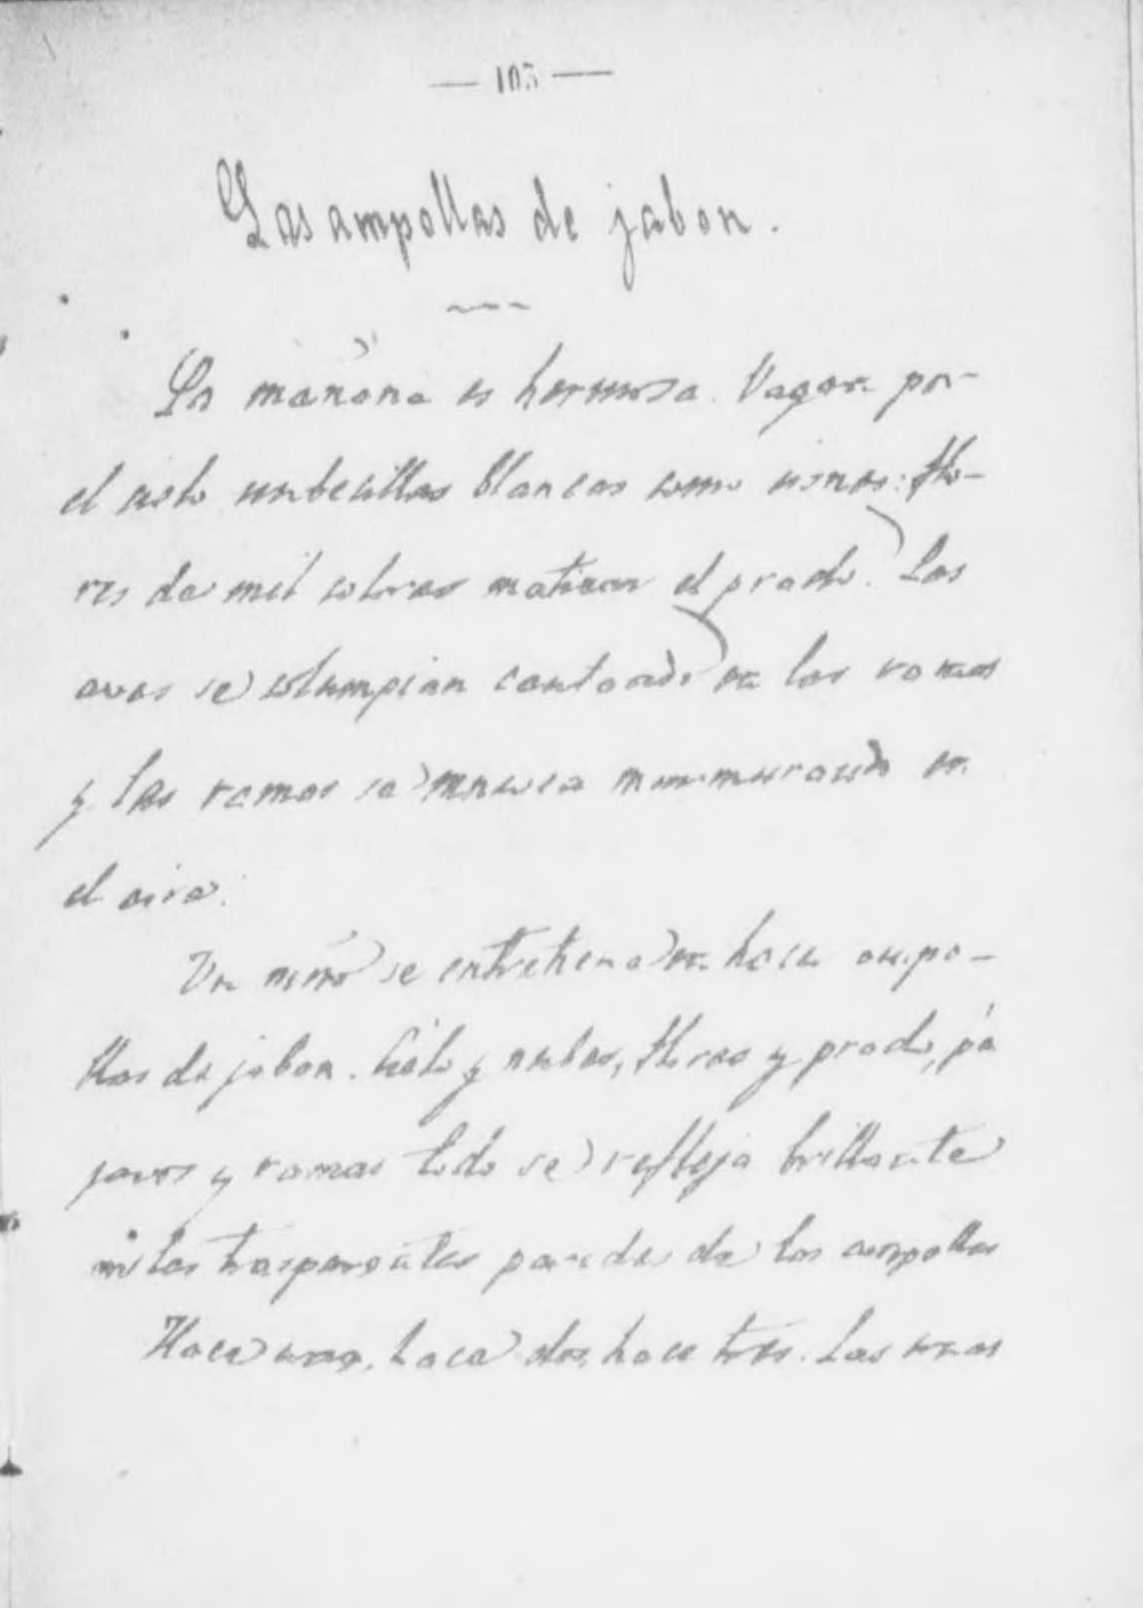 — 105 —
Las ampollas de jabon.
La mañana es hermosa. Vagan por
el cielo nubecillas blancas como cisnes: flo-
res de mil colores matizan el prado. Las
aves se columpian cantando en las ramas
y las ramas se mueven murmurando en
el aire.
Un niño se entretiene en hacer ampo-
llas de jabon. Cielo y nubes, flores y prado, pá
jaros y ramas todo se refleja brillante
en las trasparentes paredes de las ampollas
Hace una, hace dos, hace tres. Las unas